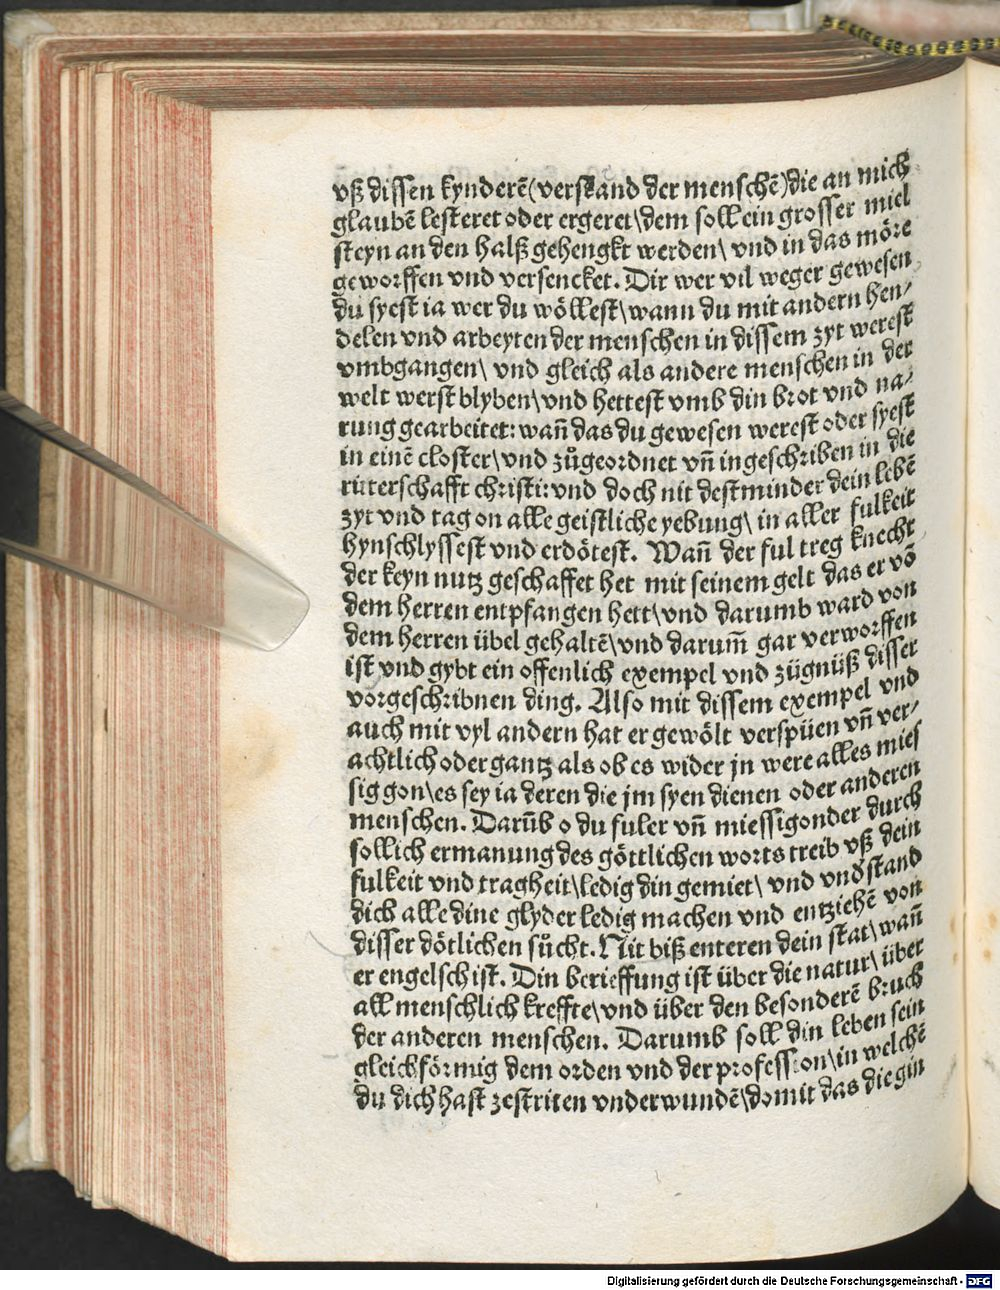 vß dissen kynderē(verstand der menschē)die an mich
glaubē lesteret oder ergeret\dem soll ein grosser miel
steyn an den halß gehengkt werden\ vnd in das möre
geworffen vnd versencket. Dir wer vil weger gewesen
du syest ia wer du wöllest\wann du mit andern hen⸗
delen vnd arbeyten der menschen in dissem zyt werest
vmbgangen\ vnd gleich als andere menschen in der
welt werst blyben\vnd hettest vmb din brot vnd na⸗
rung gearbeitet: wan̄ das du gewesen werest oder syest
in einē closter\vnd zůgeordnet vn̄ ingeschriben in die
ritterschafft christi: vnd doch nit destminder dein lebē
zyt vnd tag on alle geistliche yebung\ in aller fulkeit
hynschlyssest vnd erdötest. Wan̄ der ful treg knecht
der keyn nutz geschaffet het mit seinem gelt das er vō
dem herren entpfangen hett\vnd darumb ward von
dem herren übel gehaltē\vnd darum̄ gar verworffen
ist vnd gybt ein offenlich exempel vnd zügnüß disser
vorgeschribnen ding. Also mit dissem exempel vnd
auch mit vyl andern hat er gewölt verspüen vn̄ ver⸗
achtlich oder gantz als ob es wider jn were alles mies
sig gon\es sey ia deren die jm syen dienen oder anderen
menschen. Darūb o du fuler vn̄ miessigonder durch
sollich ermanung des göttlichen worts treib vß dein
fulkeit vnd tragheit\ledig din gemiet\ vnd vnd stand
dich alle dine glyder ledig machen vnd entziehē von
disser dötlichen sůcht. Nit biß enteren dein stat\wan̄
er engelsch ist. Din berieffung ist über die natur\ über
all menschlich kreffte\vnd über den besonderē bruch
der anderen menschen. Darumb soll din leben sein
gleichförmig dem orden vnd der profession\in welchē
du dich hast zestriten vnderwundē\domit das die gin
Digitalisierung gefördert durch die Deutsche Forschungsgemeinschaft - DFG